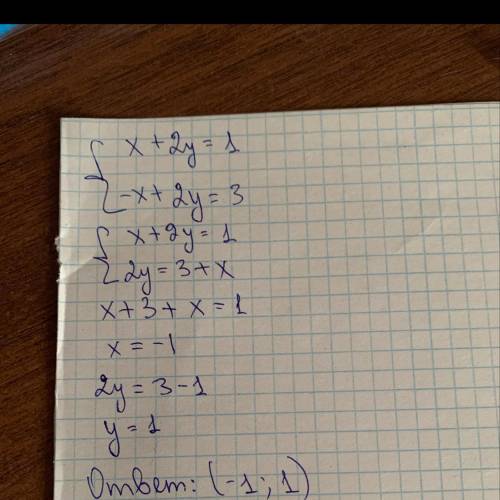 x + 2y = 1
-x + 2y = 3
x + 2y = 1
2y = 3 + x
x + 3 + x = 1
x = -1
2y = 3 - 1
y = 1
Ответ: (-1; 1)